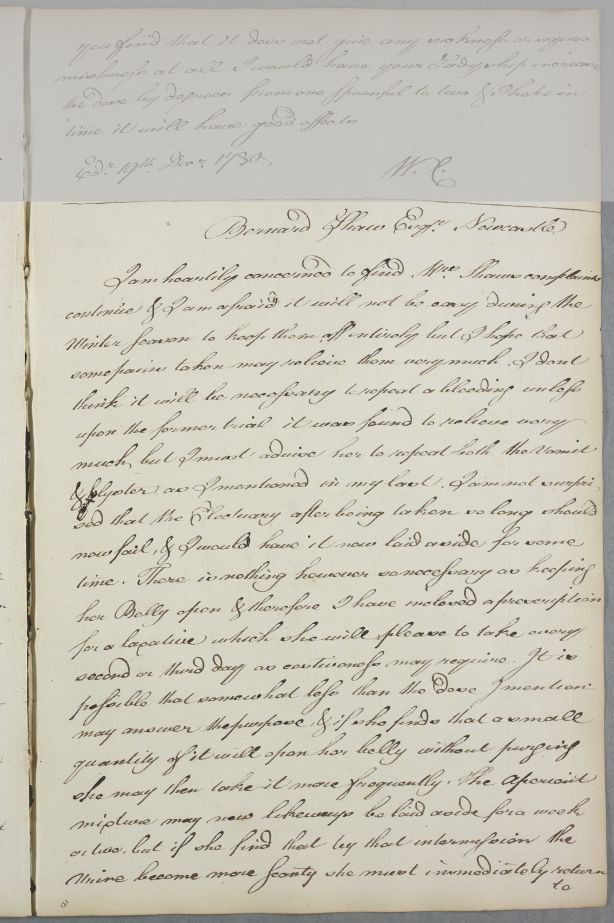 you find that it does not give any sickness or squea=
mishness at all I would have your Ladyship increase
the dose by degrees from one spoonful to two & I hope in
time it will have good effects
Edr. 19th. Decr. 1780.
W. C.
Bernard Shaw Esqr. Newcastle
I am heartily concerned to find Mrs. Shaws complaints
continue & I am afraid it will not be easy during the
Winter season to keep them off intirely but I hope that
some pains taken may relieve them very much. I dont
think it will be necessary to repeat a bleeding unless
upon the former trial it was found to relieve very
much, but I must advise her to repeat both the Vomit
& Glyster as I mentioned in my last. I am not surpri-
sed that the Electuary after being taken so long should
now fail, & I would have it now laid aside for some
time. There is nothing however so necessary as keeping
her Belly open & therefore I have inclosed a prescription
for a laxative which she will please to take every
second or third day as costiveness may require. It is
possible that somewhat less than the dose I mention
may answer the purpose, & if she finds that a small
quantity of it will open her belly without purging
she may then take it more frequently. The Aperient
mixture may now likeways be laid aside for a week
or two, but if she find that by that intermission the
Urine become more scanty she must immediately return
to